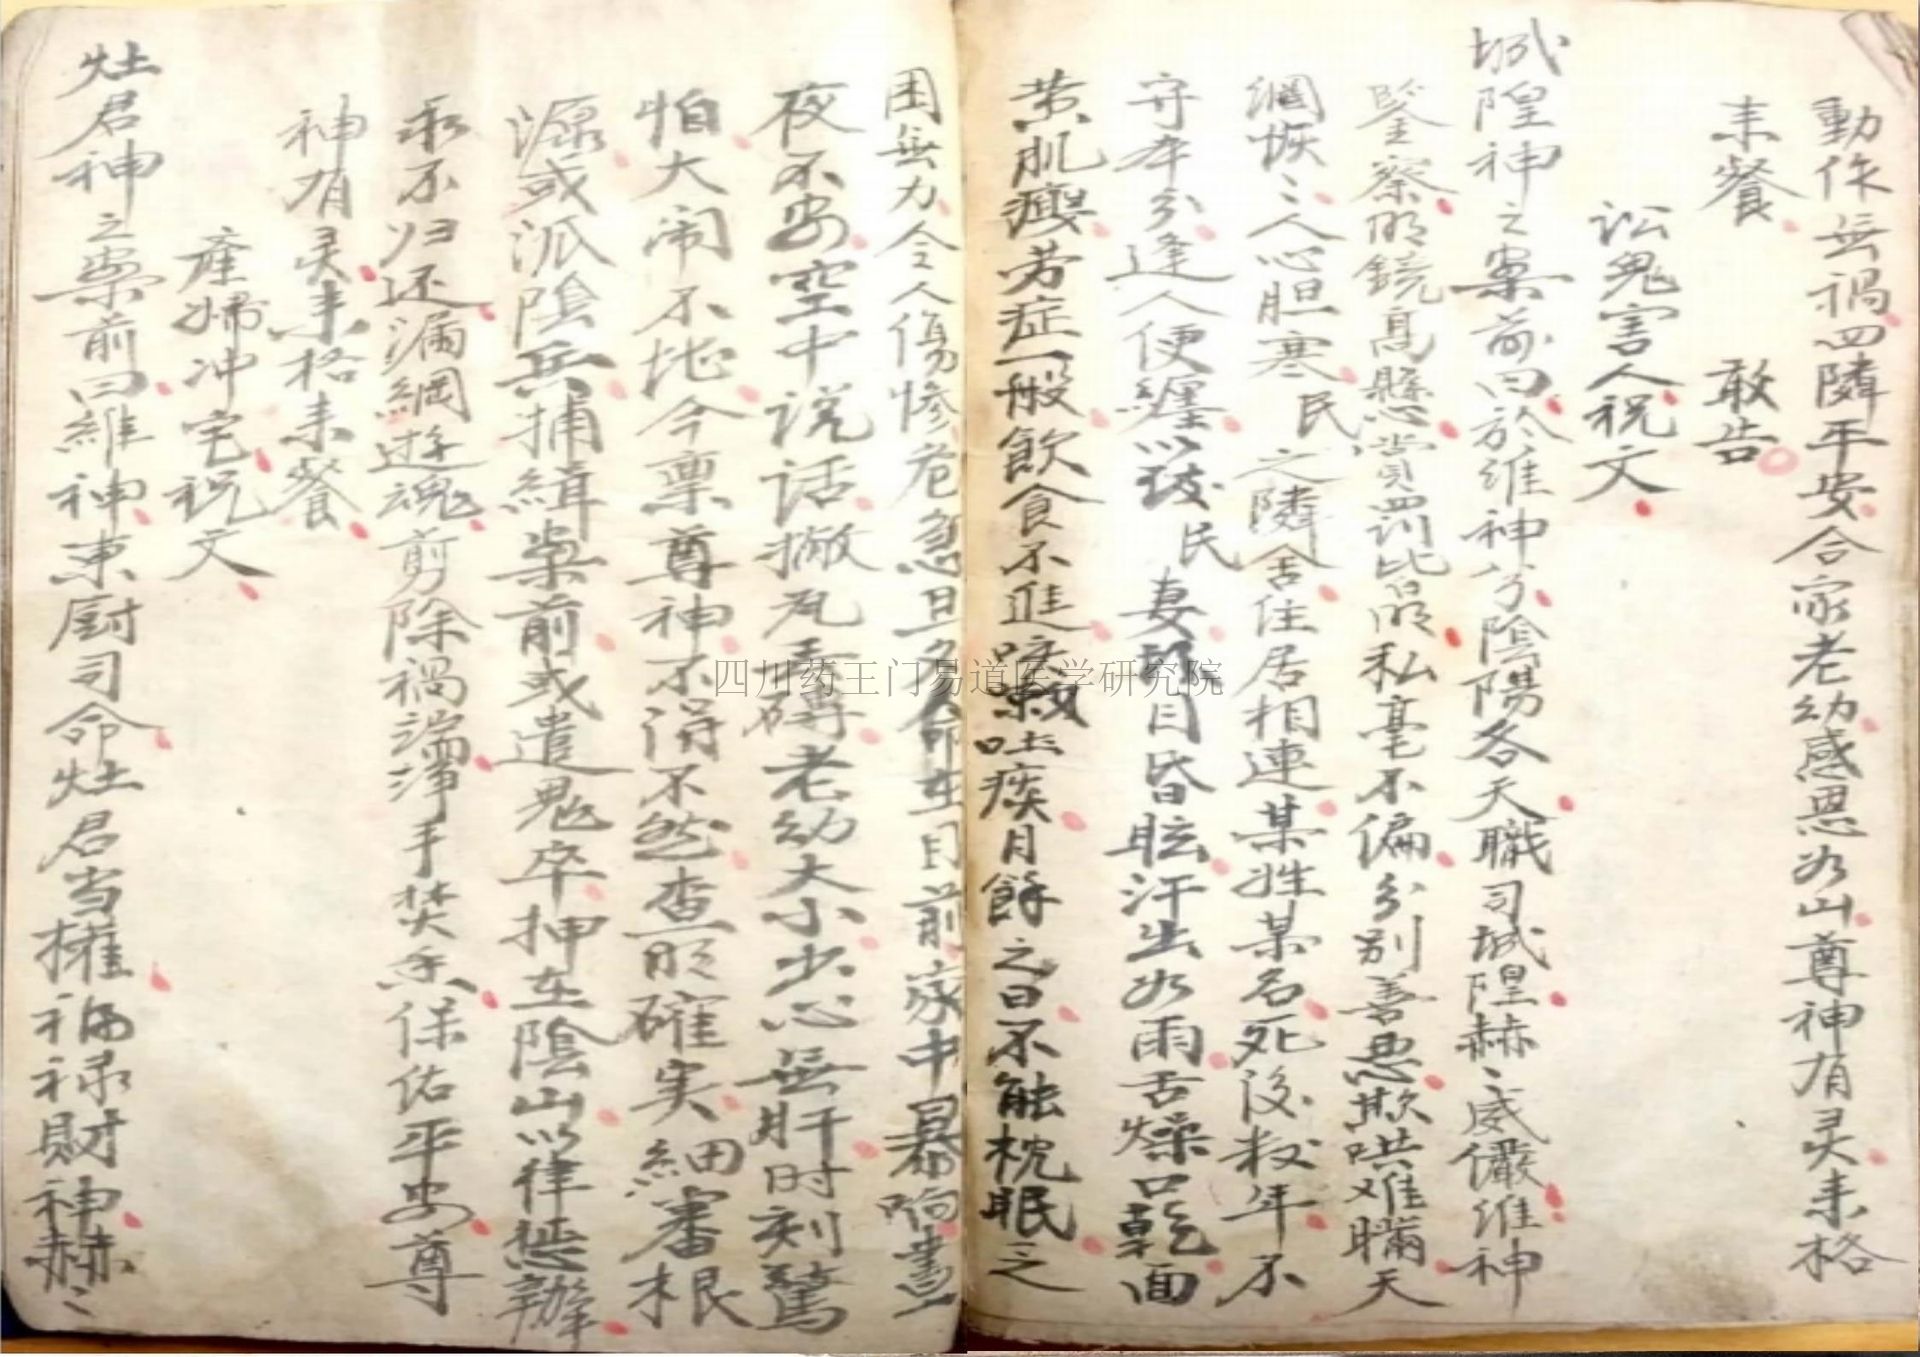 動作無禍四隣平安合家老幼感恩如山尊神有灵来格
来餐 敢告
訟鬼害人祝文
城隍神之案前曰於維神分陰陽各天職司城隍赫〻威儼維神
鑒察明鏡高懸賞罰比昂私毫不偏分別善悪欺哄难瞞天
網恢〻人心胆寒民之隣舍住居相連某姓某名死後数年不
守本分逢人便纏以致民妻 目昏眩汗出如雨舌燥口乾面
黄肌瘦劳症一般飲食不進咳嗽吐痰月餘之日不能枕眠之
困無力令人傷惨危急旦夕命在目前家中暴响晝
夜不安空中说话撇瓦弄磚老幼大小少心無肝时刻驚
怕大闹不堪今禀尊神不得不然查明確实細審根
源或派陰兵捕緝案前或遣鬼卒押在陰山以律惩辦
永不归还漏網遊魂剪除禍端淨手焚香保佑平安尊
神有灵来格来餐
産婦冲宅祝文
灶君神之案前曰維神東厨司命灶君当權福禄財神赫〻
四川药王门易道医学研究院